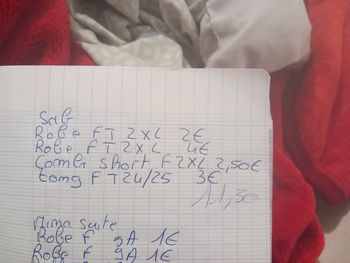 Salr
Robe F T 2XL 2€
Robe F T 2XL 4€
Combi short F 2XL 2,50€
tong F T 24/25 3€
11,50
Nima suite
Robe F 9A 1€
Robe F 9A 1€